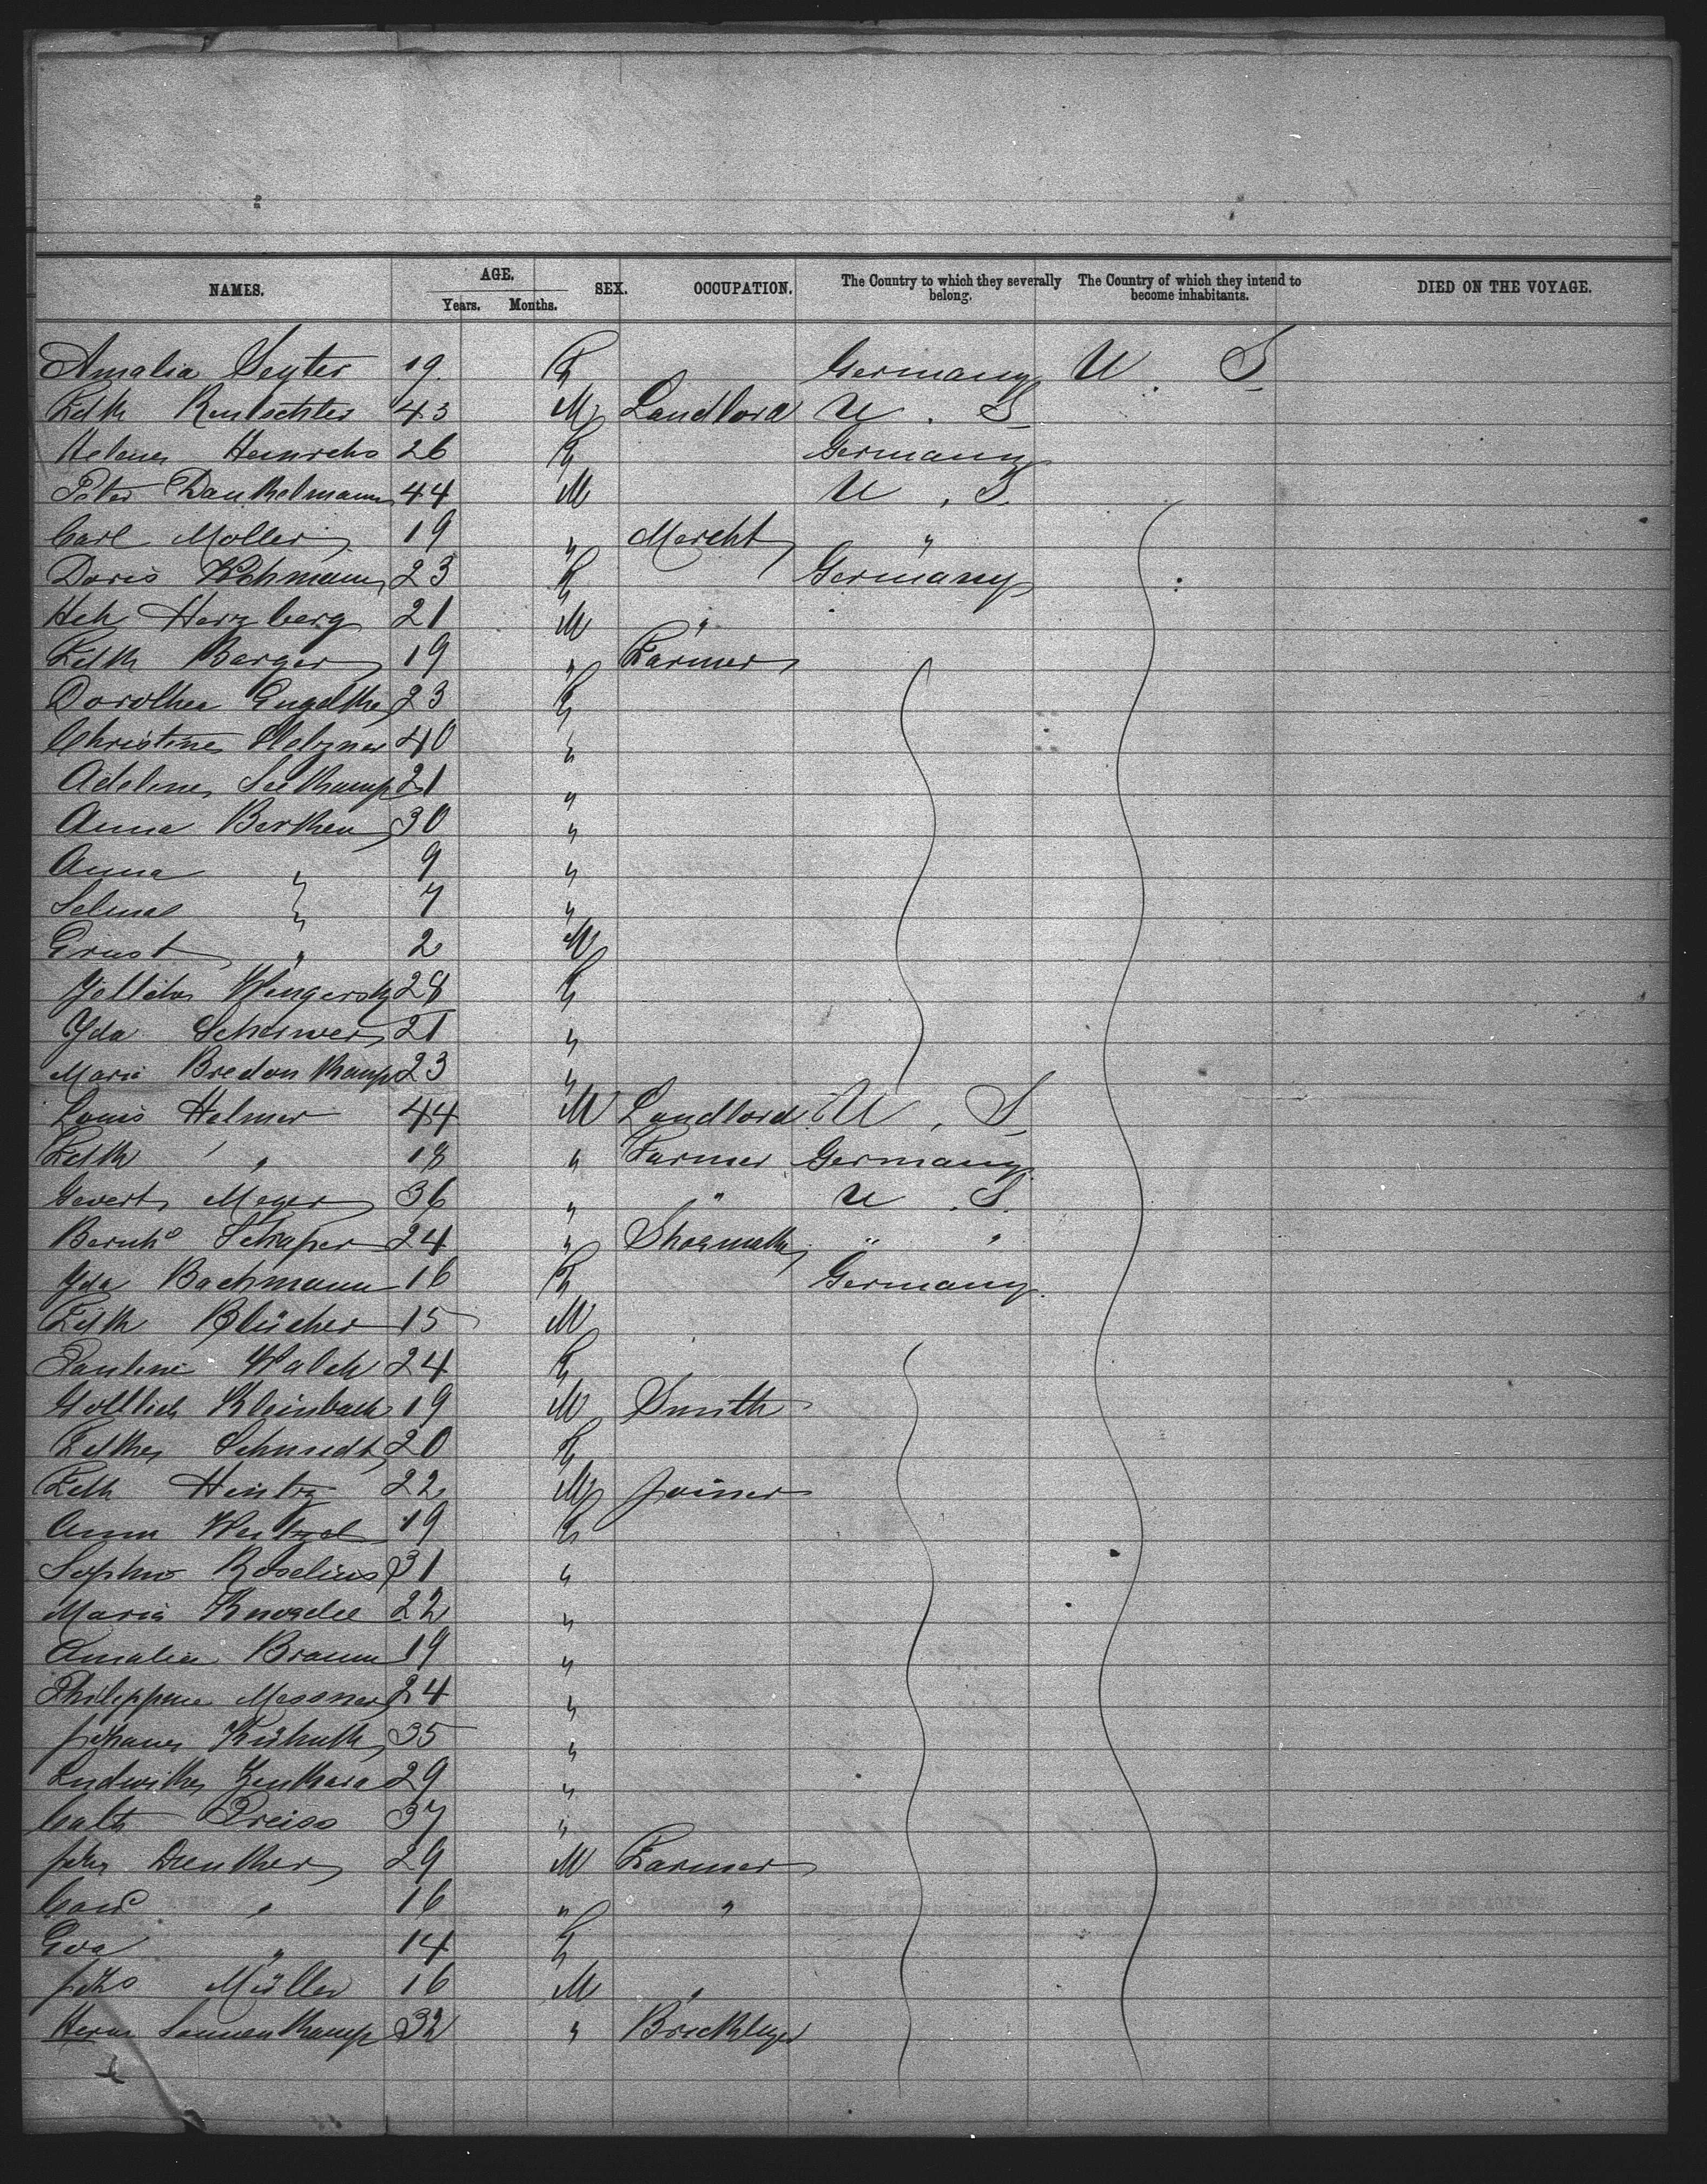 NAMES. AGE. Years. Months. SEX. OCCUPATION. The Country to which they severally belong. The Country of which they intend to become inhabitants. DIED ON THE VOYAGE.
Amalia Seyter 19 F Germany U. S
Fdk Rentschler 43 M Landlord U. S
Helene Heinrichs 26 F Germany
Peter Dankelmann 44 M U. S.
Carl Moller 19 " Mercht "
Doris 23 F Germany
Hch Herzberg 21 M "
Fdk Berger 19 " Farmer
Dorothea Engelke 23 F
Christine 40 "
Adeline Seekamp 21 "
Anna Berken 30 "
Anna " 9 "
Selma " 7 "
Ernst " 2 M
Wengersky 28 F
Ida 21 "
Marie Bredenkamp 23 "
Louis Helmer 44 M Landlord U. S
Fdk " 18 " Farmer Germany
Gevert Meyer 36 " " U. S.
Bernhd Schaper 24 " Shoemak " "
Ida Bachmann 16 F Germany.
Fdk Blücher 15 M
Pauline Walch 24 F
Gottlieb Kleinbach 19 M Smith
Schmidt 20 F
Fdk Hintz 22 M Joiner
Anna Weitzel 19 F
Sophie Roselius 31 "
Maria 22 "
Amalia Braun 19 "
Philippine Messner 24 "
Johanna 35 "
Ludwika 29 "
Cath Preiss 37 "
Joh Denker 29 M Farmer
Cord " 16 " "
Eva " 14 F
Johs Müller 16 M "
Herm Sonnenkamp 32 " Bricklayer